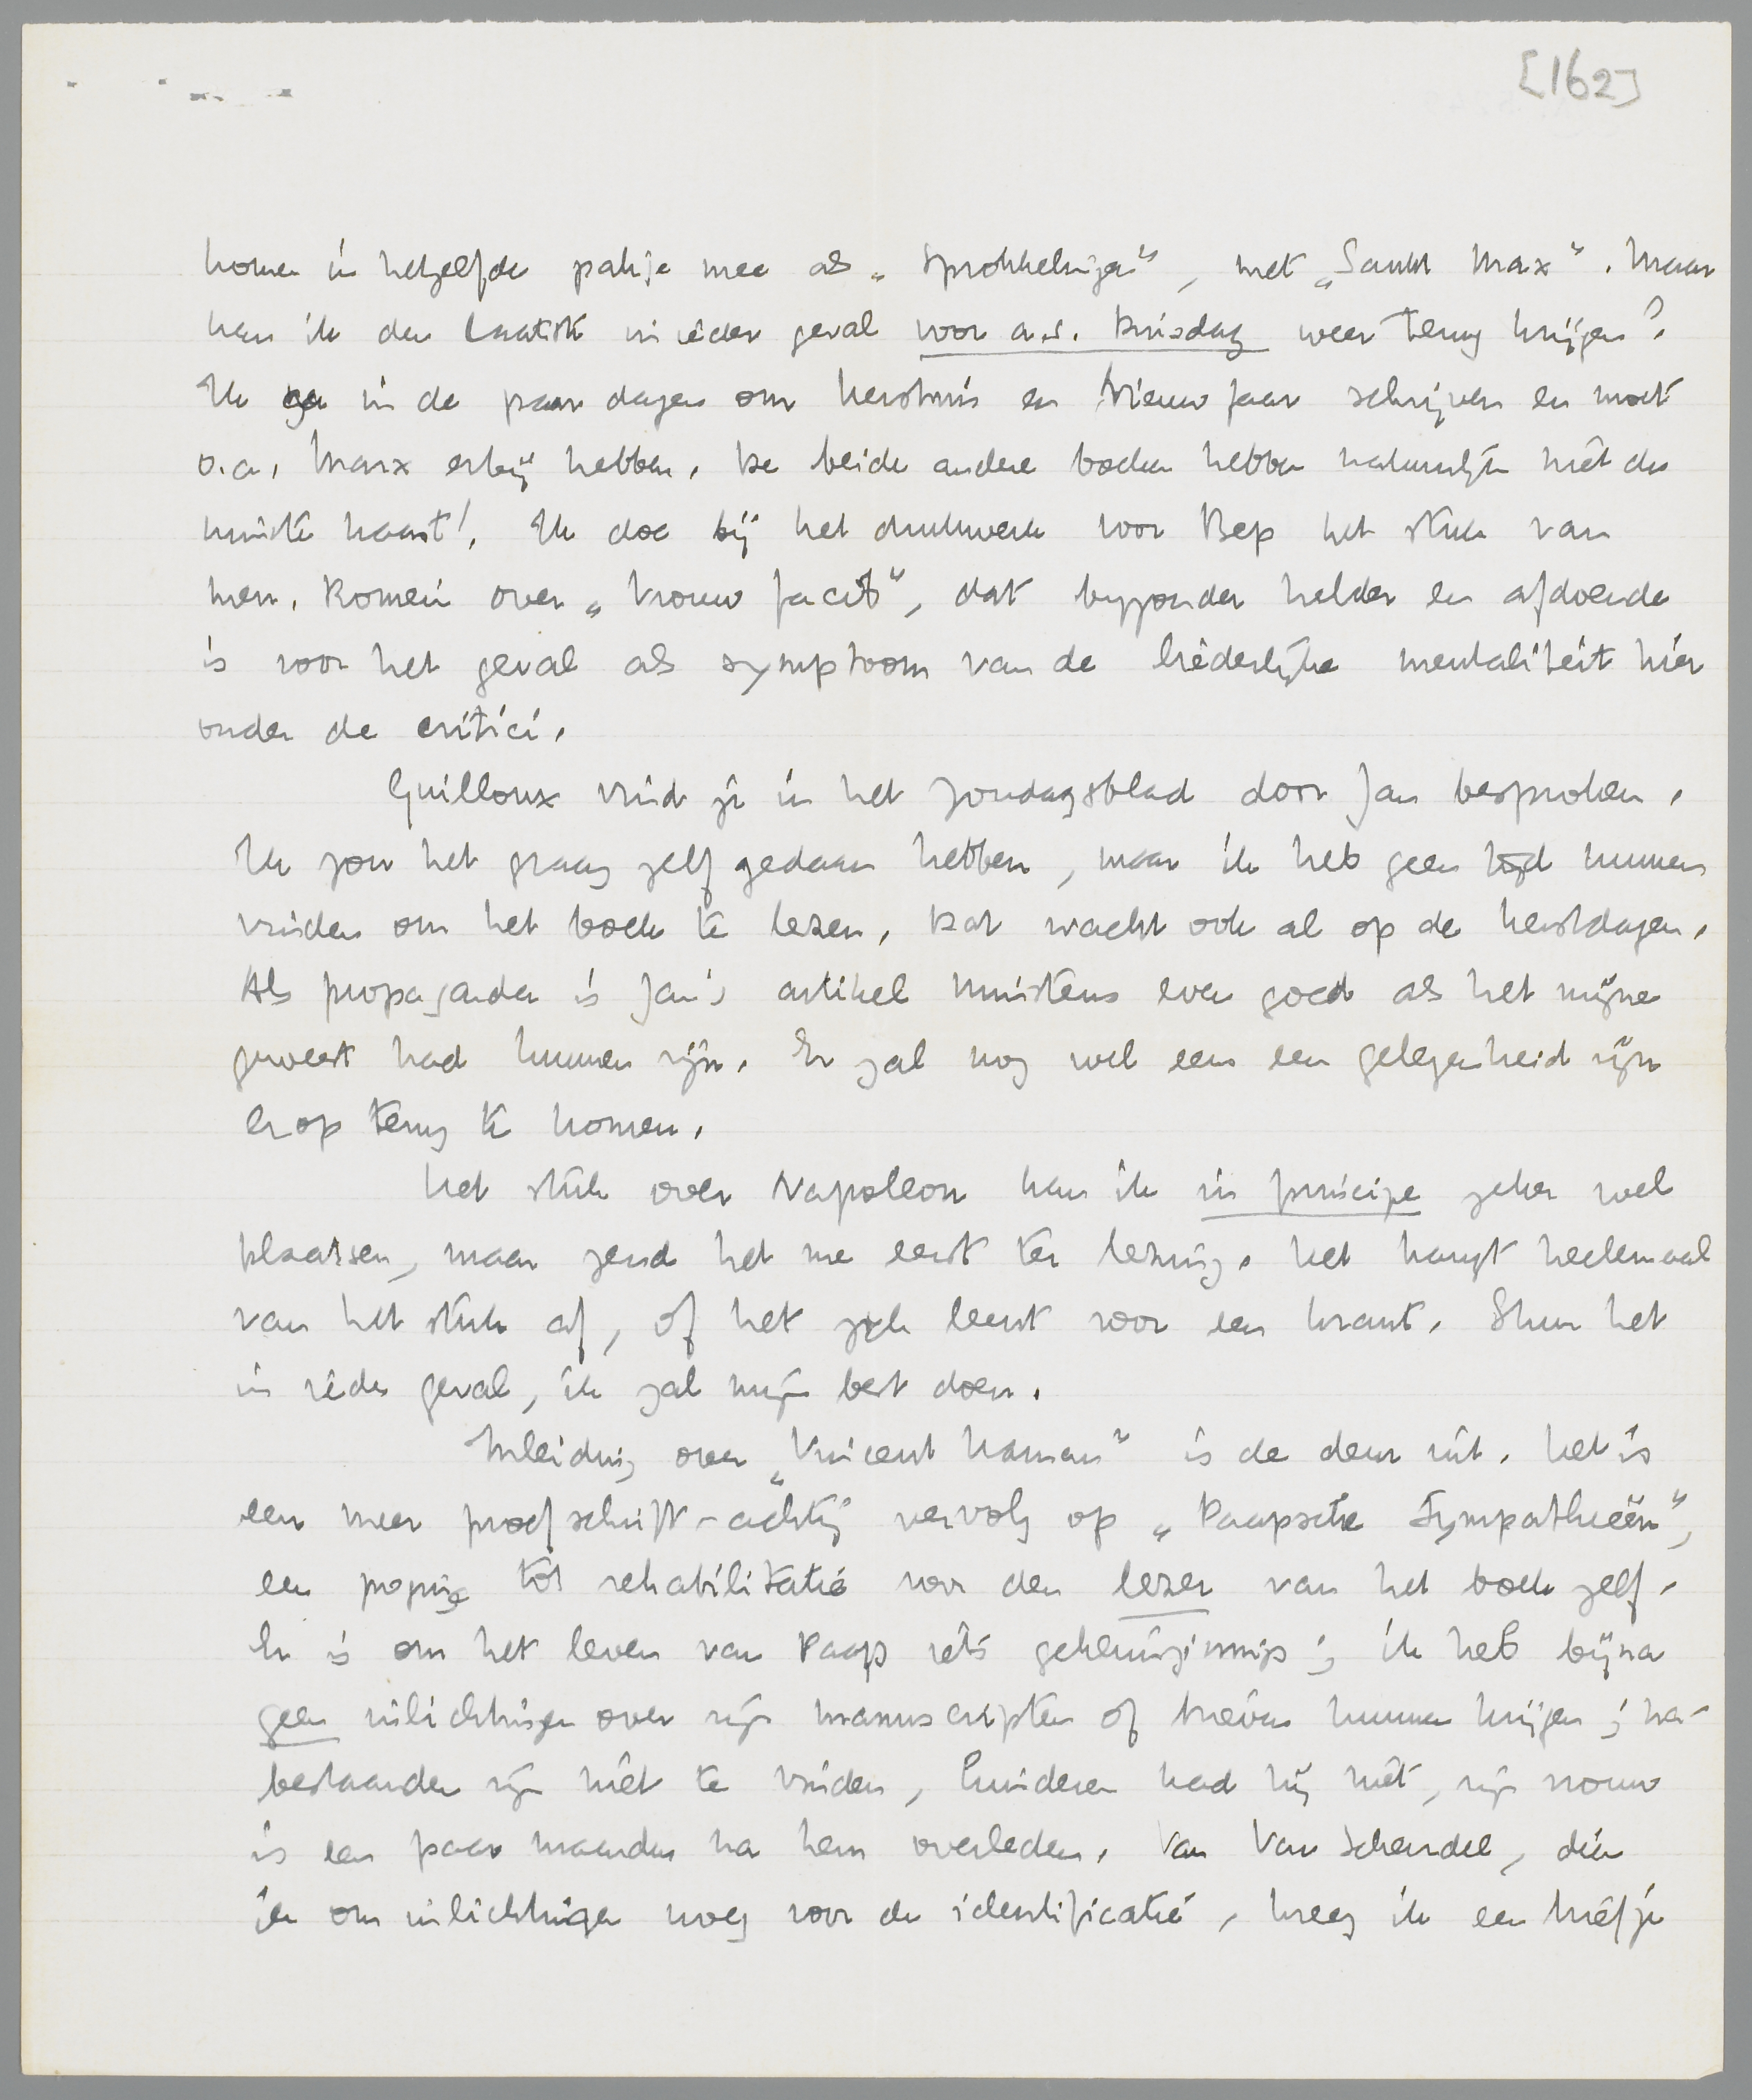 [162]
komen in hetzelfde pakje mee als „Sprokkelingen”, met „Sankt Max”. Maar
kan ik den laatste in ieder geval voor a.s. Dinsdag weer terug krijgen?
Ik ga in de paar dagen om Kerstmis en Nieuwjaar schrijven en moet
o.a. Marx erbij hebben. De beide andere boeken hebben natuurlijk niet de
minste haast! Ik doe bij het drukwerk voor Bep het stuk van
mevr. Romein over „Vrouw Jacob”, dat byzonder helder en afdoende
is voor het geval als symptoom van de liederlijke mentaliteit hier
onder de critici.
Guilloux vind je in het Zondagsblad door Jan besproken.
Ik zou het graag zelf gedaan hebben, maar ik heb geen tijd kunnen
vinden om het boek te lezen. Dat wacht ook al op de kerstdagen.
Als propaganda is Jan's artikel minstens even goed als het mijne
geweest had kunnen zijn. Er zal nog wel eens een gelegenheid zijn
erop terug te komen.
Het stuk over Napoleon kan ik in principe zeker wel
plaatsen, maar zend het me eerst ter lezing. Het hangt heelemaal
van het stuk af, of het zich leent voor een krant. Stuur het
in ieder geval, ik zal mijn best doen.
Inleiding over „Vincent Haman” is de deur uit. Het is
een meer proefschrift-achtig vervolg op „Paapsche Sympathieën”,
een poging tot rehabilitatie voor den lezer van het boek zelf.
Er is om het leven van Paap iets geheimzinnigs; ik heb bijna
geen inlichtingen over zijn manuscripten of brieven kunnen krijgen; na-
bestaanden zijn niet te vinden, kinderen had hij niet, zijn vrouw
is een paar maanden na hem overleden. Van Van Schendel, dien
ik om inlichtingen vroeg voor de identificatie, kreeg ik een briefje